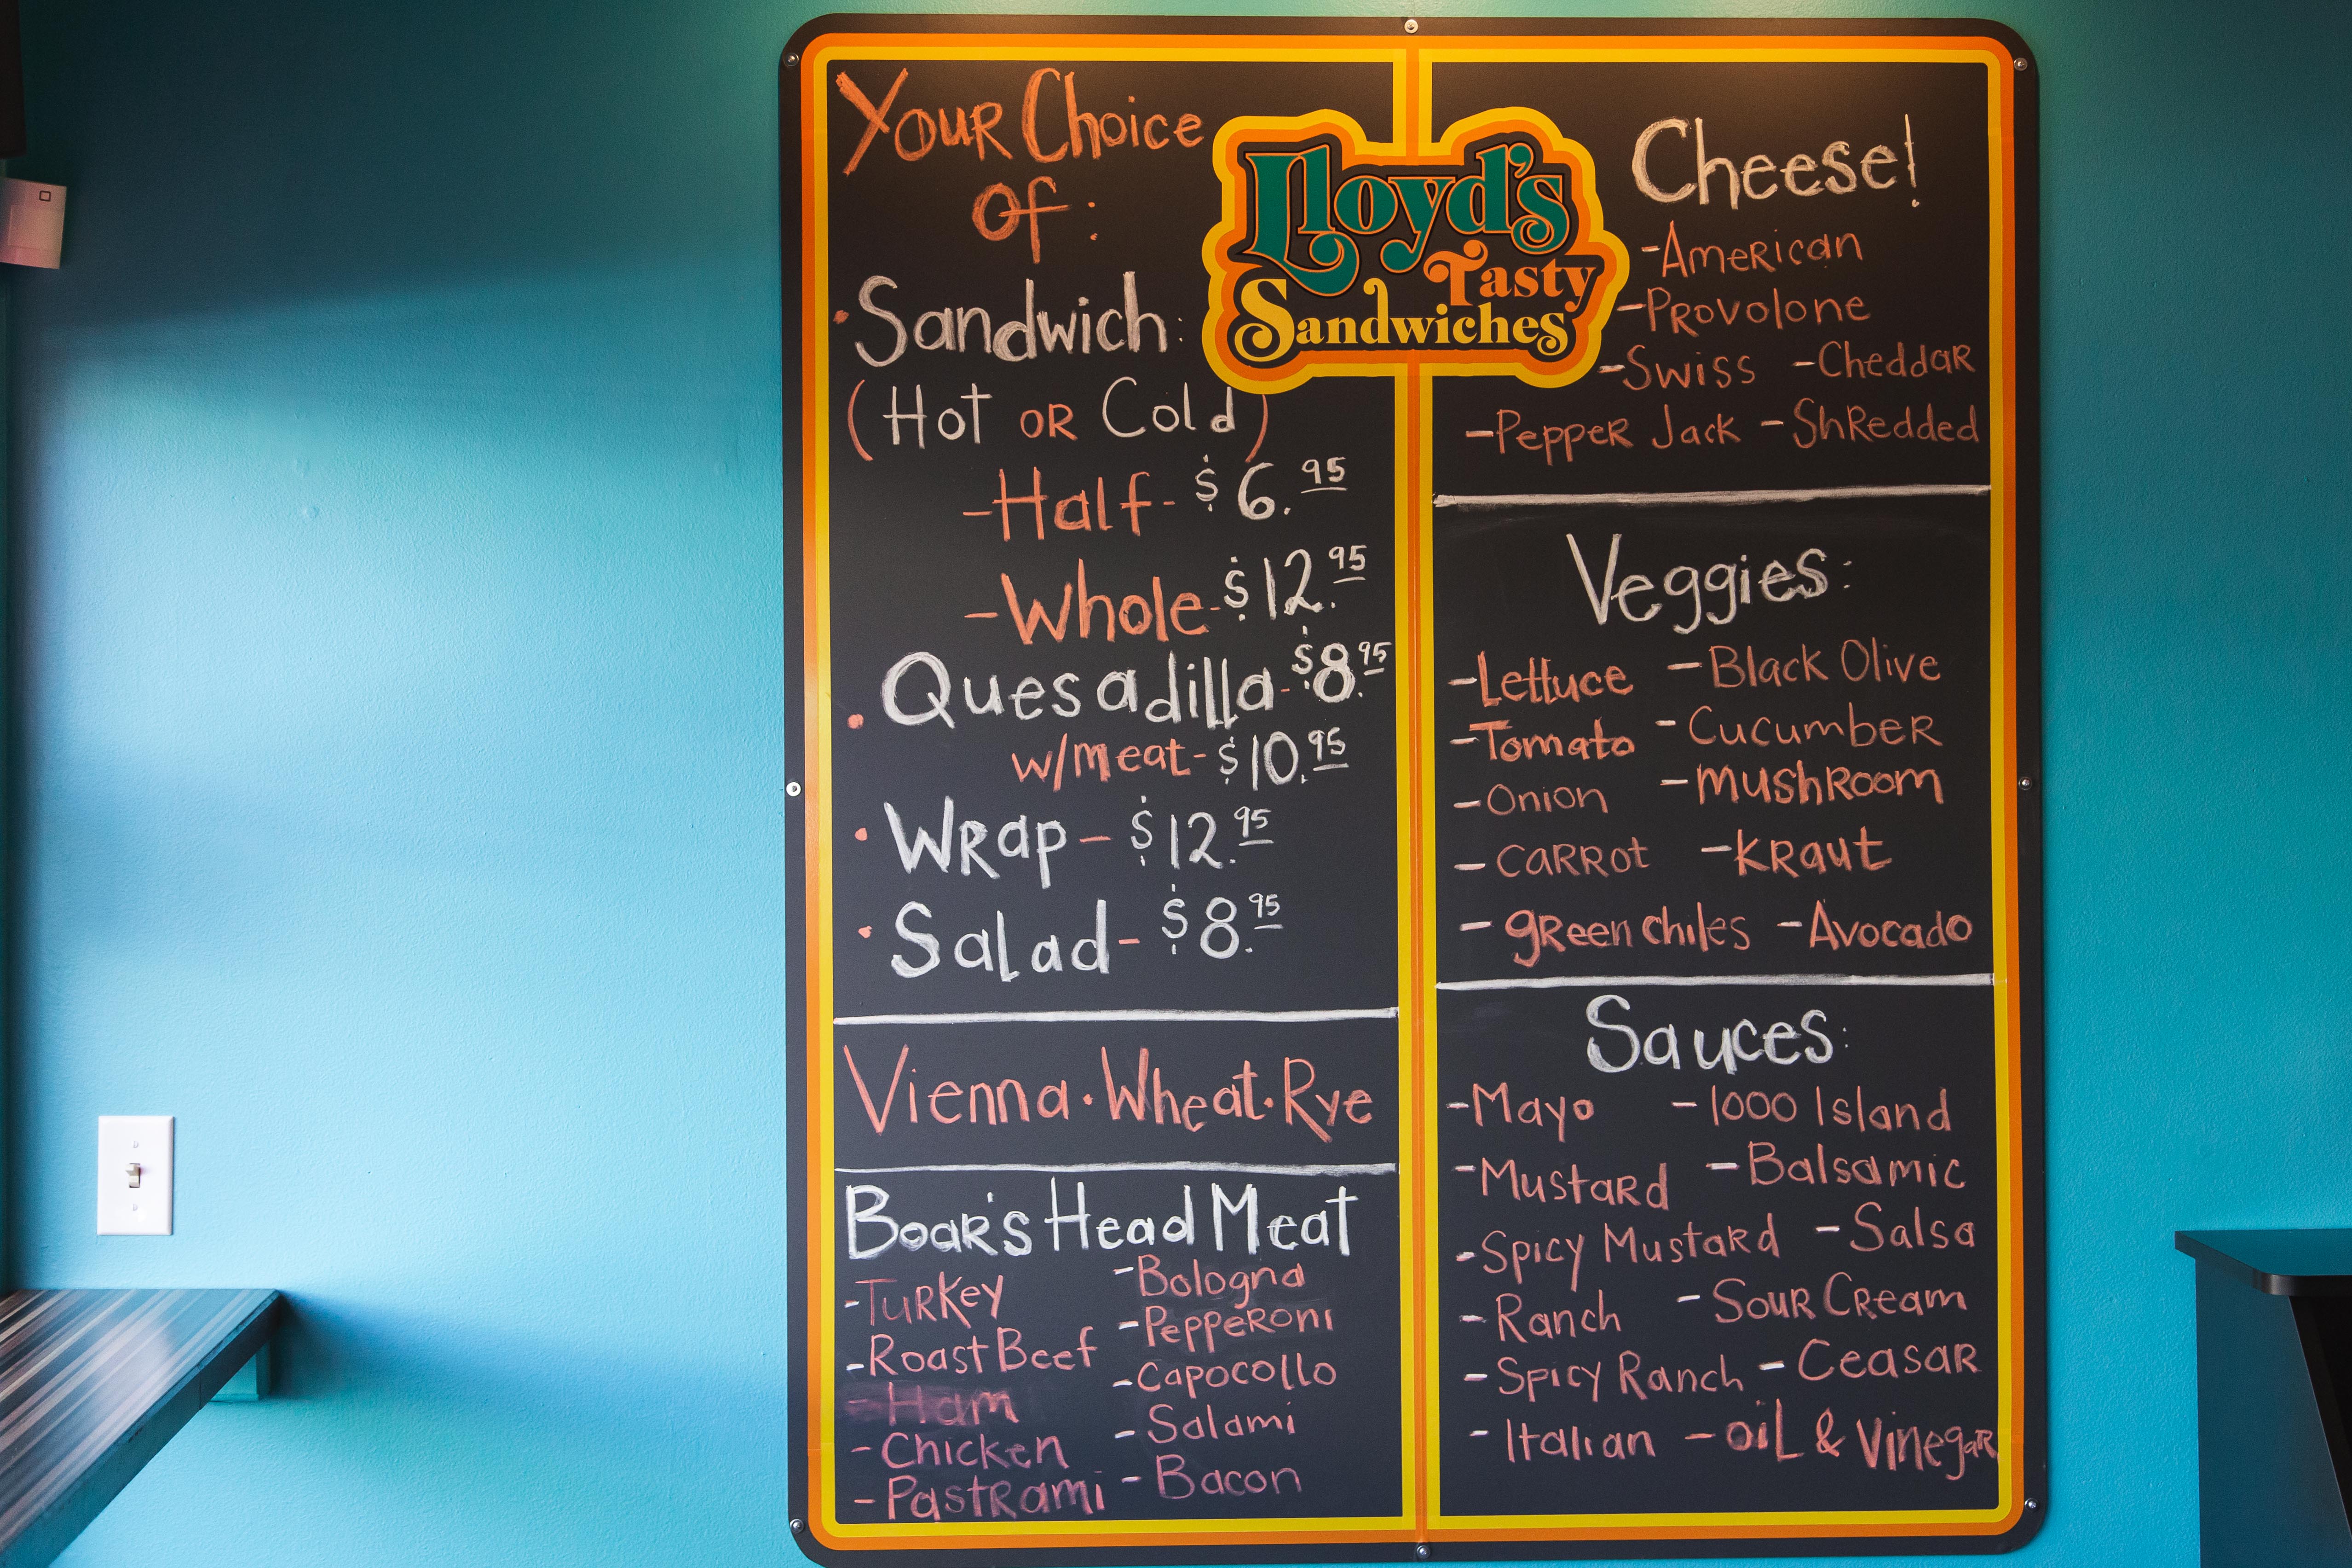 Your Choice
Of:
Lloyd's
Tasty
Sandwiches
• Sandwich:
(Hot or Cold)
-Half- $6.95
-Whole- $12.95
• Quesadilla- $8.95
w/meat- $10.95
• Wrap- $12.95
• Salad- $8.95
Vienna • Wheat • Rye
Boar's Head Meat
-Turkey
-Roast Beef
-Ham
-Chicken
-Pastrami
-Bologna
-Pepperoni
-Capocollo
-Salami
-Bacon
Cheese!
-American
-Provolone
-Swiss -Cheddar
-Pepper Jack -Shredded
Veggies:
-Lettuce -Black Olive
-Tomato -Cucumber
-Onion -Mushroom
-Carrot -Kraut
-green chiles -Avocado
Sauces:
-Mayo -1000 Island
-Mustard -Balsamic
-Spicy Mustard -Salsa
-Ranch -Sour Cream
-Spicy Ranch -Ceasar
-Italian -oil & Vinegar